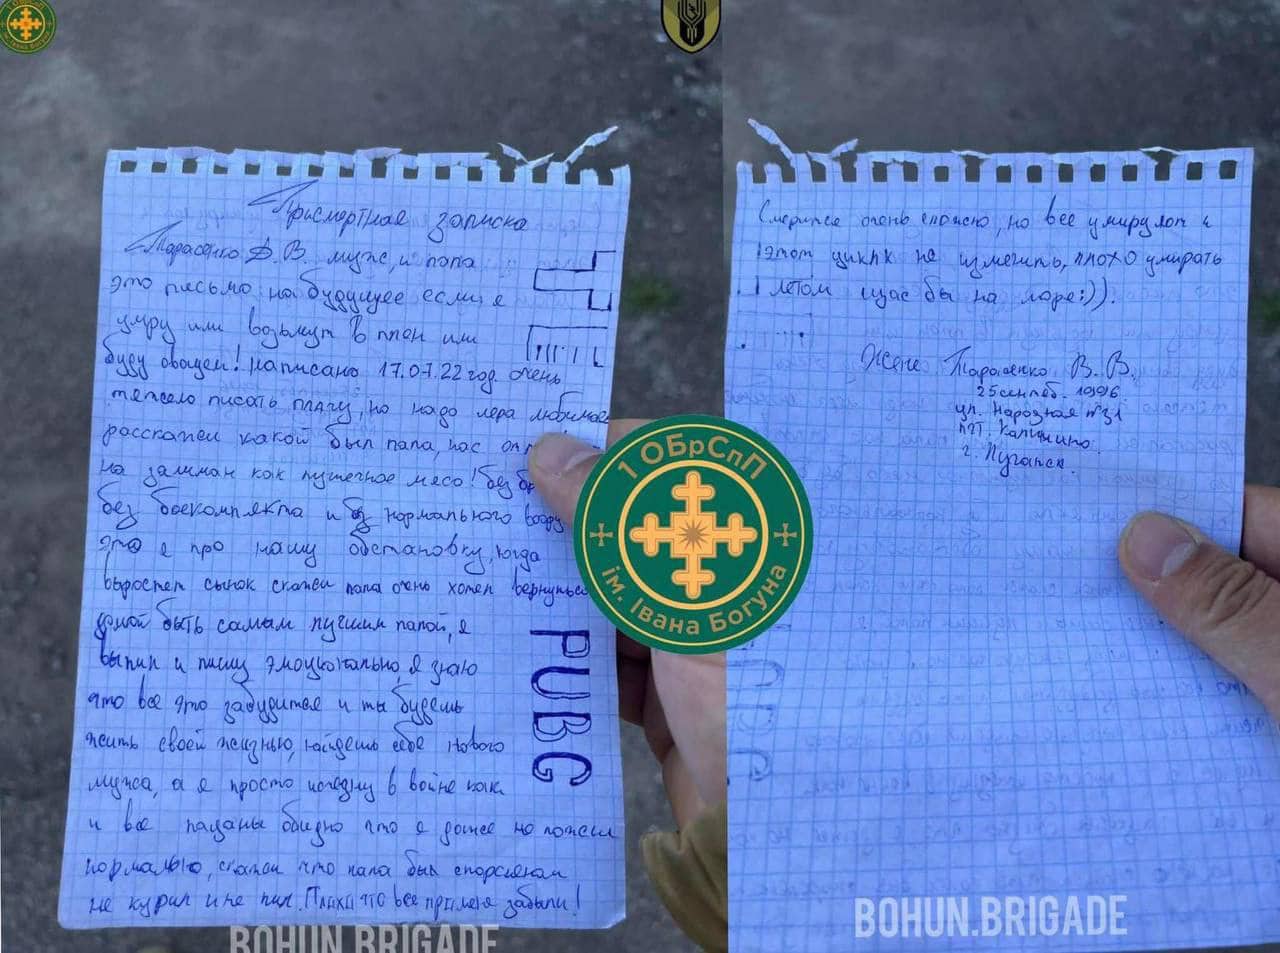 Присмертная записка
Тарасенко А.В. муж, и папа
это письмо на будущее если я
умру или возьмут в плен или
буду овощем! написано 17.07.22 год. очень
тяжело писать плачу, но надо лера любимая
расскажи какой был папа, нас
на залман как пушечное мясо! без
без боекомплекта и без нормального
это я про нашу обстановку, когда
выростет сынок скажи папа очень хотел вернуться
домой быть самым лучшим папой, я
выпил и пишу эмоцыонально, я знаю
что все это забудится и ты будешь
жить своей жизнью, найдешь себе нового
мужа, а я просто изчезну в войне как
и все пацаны обидно что я даже не пожил
нормально, скажи что папа был спорсменом
не курил и не пил. Плаха что все про меня забыли!
PUBG
Смерится очень сложно, но все умирулот и
этот цикл не изменить, плохо умирать
летом щас бы на море:)).
Жене Тарасенко В.В.
25 сентеб. 1996
ул. Народная
пгт. Калинино
г. Луганск.
1 ОБрСпП
ім. Івана Богуна
BOHUN.BRIGADE
BOHUN.BRIGADE
ім. Івана Богуна